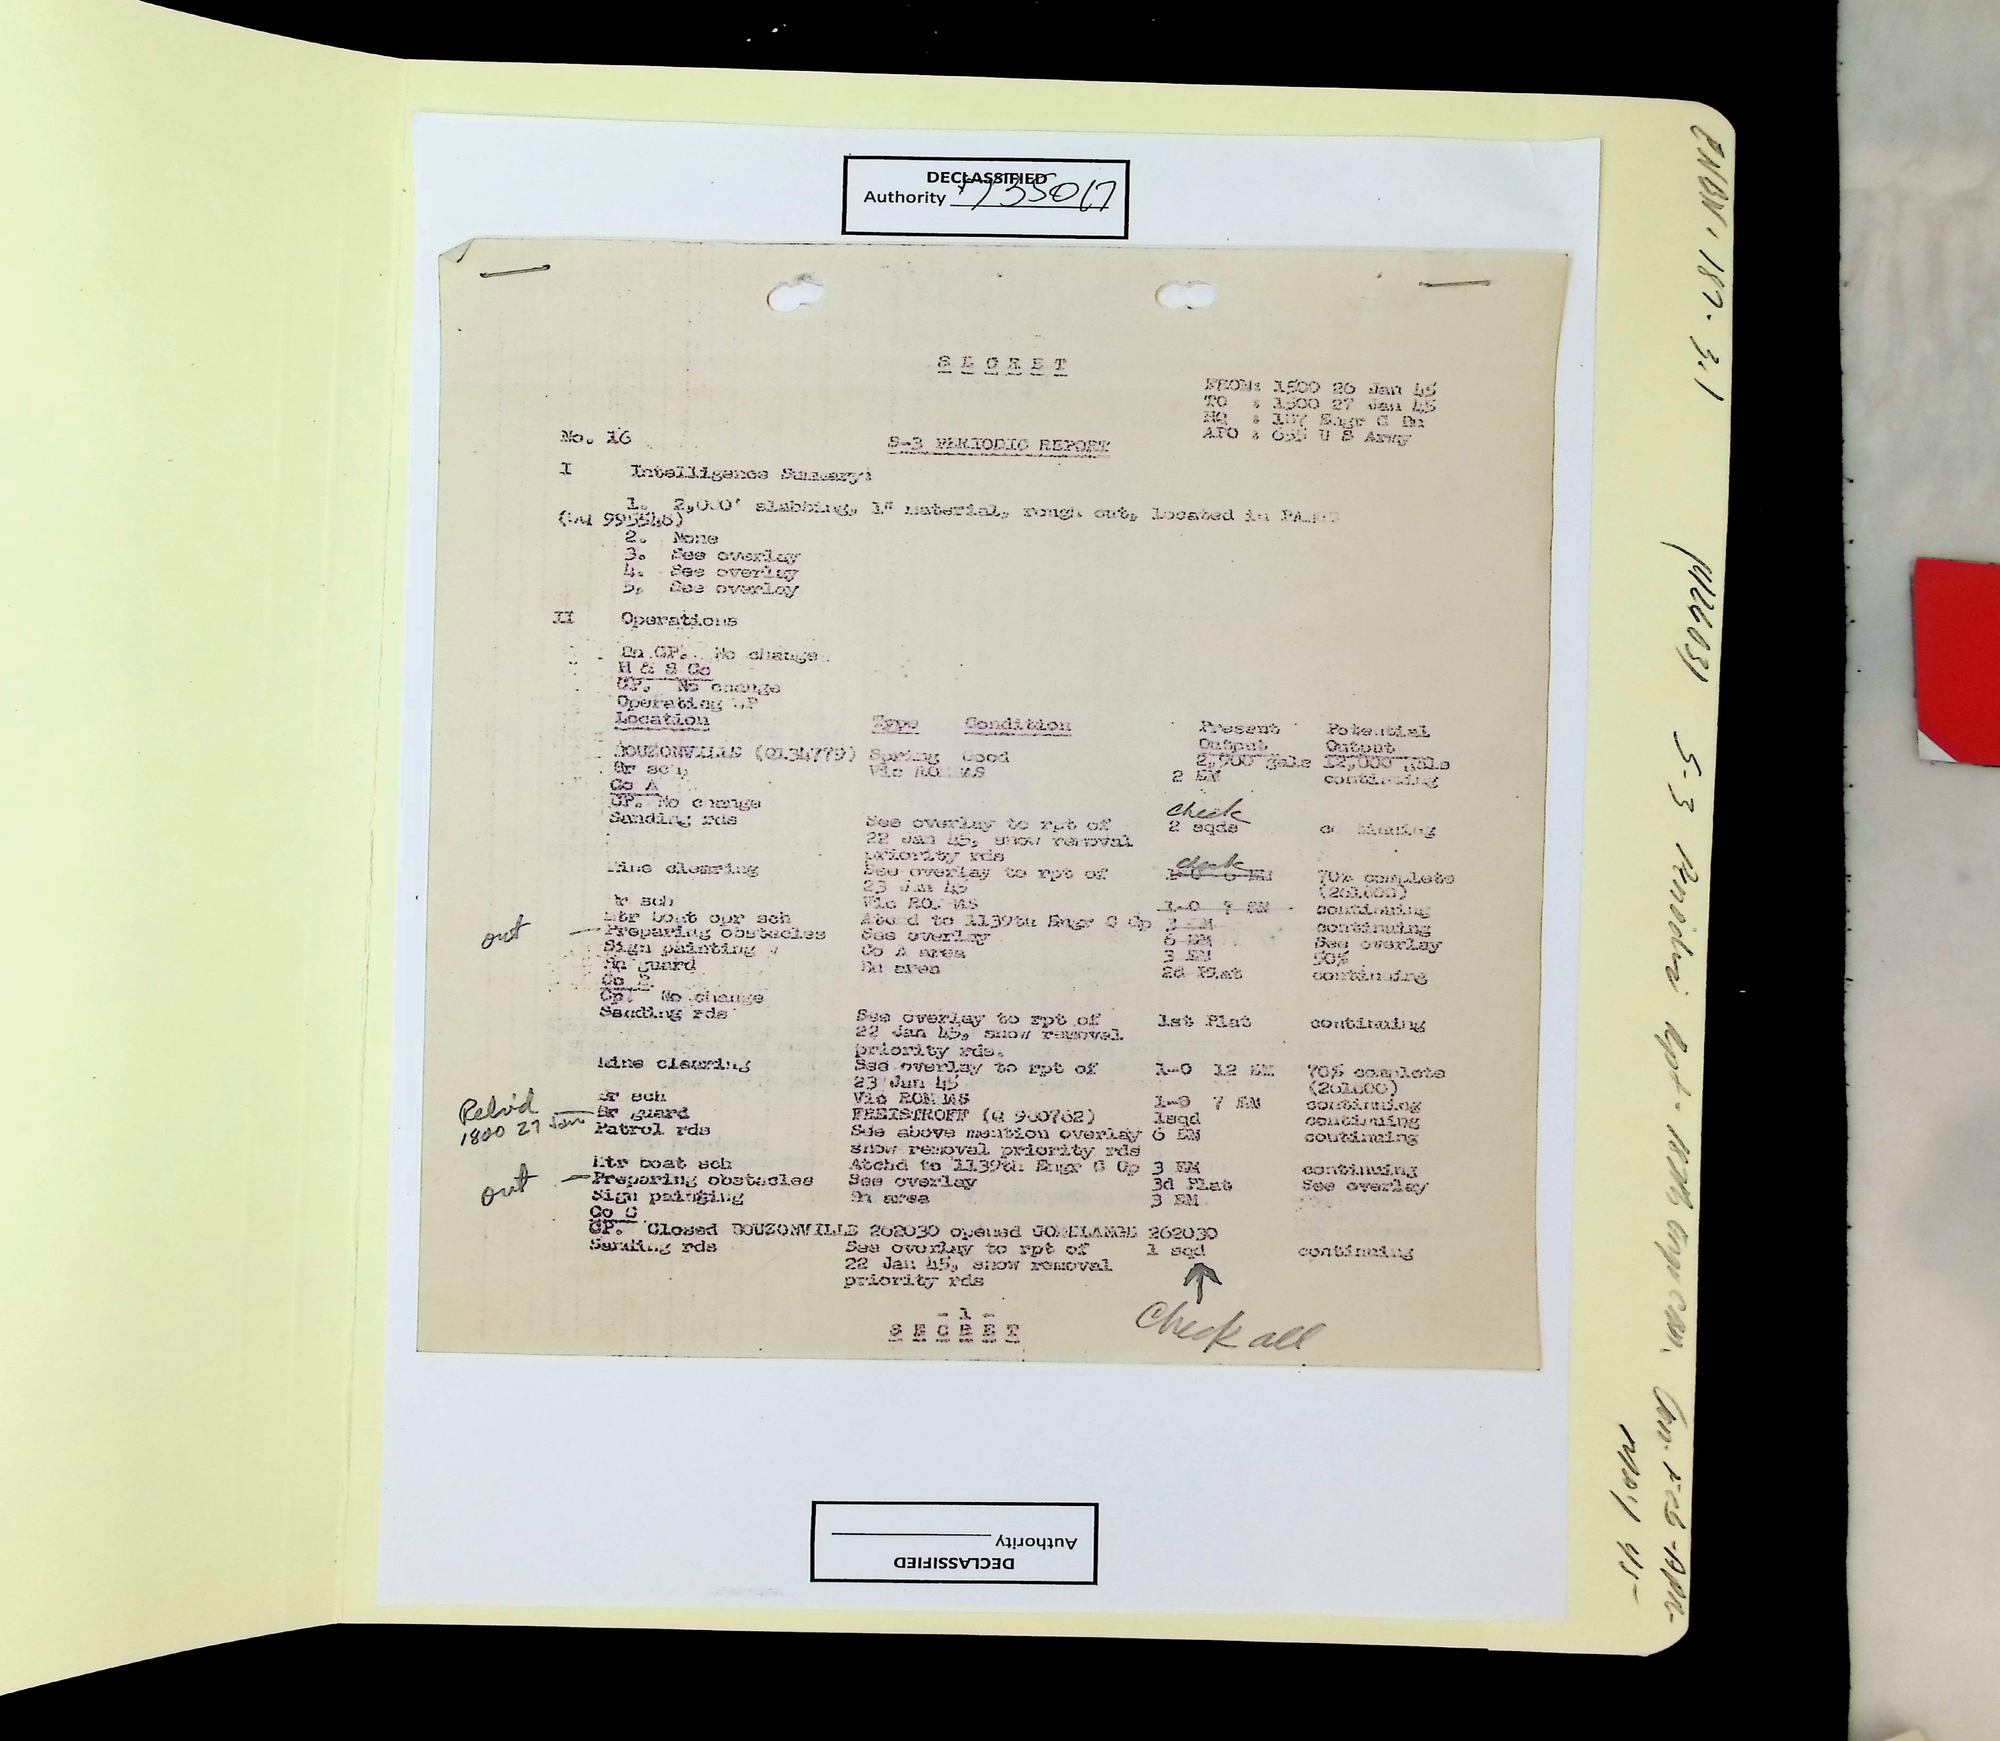 DECLASSIFIED
Authority 735017
S E C R E T
FROM: 1500 26 Jan 45
TO : 1500 27 Jan 45
HQ : 187 Engr C Bn
APO : 658 U S Army
No. 16
S-3 PERIODIC REPORT
I Intelligence Summary:
1. 2,000' slabbing, 1" material, rough cut, located in
2. None
3. See overlay
4. See overlay
5. See overlay
II Operations
Bn CP. No change
H & S Co
CP. No change
Operating WP
Location Type Condition Present Output Potential Output
BOUZONVILLE (Q134779) Spring Good 2,900 gals 12,000 gals
Br sch Vic 2 EM continuing
Co A
CP. No change
check
Sanding rds See overlay to rpt of 2 sqds continuing
22 Jan 45, snow removal
priority rds
check
Mine clearing See overlay to rpt of 70% complete
23 Jan 45 (261600)
Br sch Vic 1-0 7 EM continuing
Mtr boat opr sch Atchd to 1139th Engr C Gp 3 EM continuing
out Preparing obstacles See overlay 6 EM See overlay
Sign painting Co A area 3 EM 50%
Bn guard Bn area 2d Plat continuing
Co B
Cp. No change
Sanding rds See overlay to rpt of 1st Plat continuing
22 Jan 45, snow removal
priority rds.
Mine clearing See overlay to rpt of 1-0 12 EM 70% complete
23 Jan 45 (261600)
Br sch Vic 1-0 7 EM continuing
Relvd 1800 27 Jan Br guard FREISTROFF (Q 960762) 1sqd continuing
Patrol rds See above mention overlay 6 EM continuing
snow removal priority rds
Mtr boat sch Atchd to 1139th Engr C Gp 3 EM continuing
out Preparing obstacles See overlay 3d Plat See overlay
Sign painging Bn area 3 EM
Co C
CP. Closed BOUZONVILLE 262030 opened GOMELANGE 262030
Sanding rds See overlay to rpt of 1 sqd continuing
22 Jan 45, snow removal
priority rds
Check all
- 1 -
S E C R E T
Authority
DECLASSIFIED
ENBN-187-3.1
(42603)
S-3 Periodic Rpt - 187th Engr Cbn. Jan. Feb-Apr-
May 45-